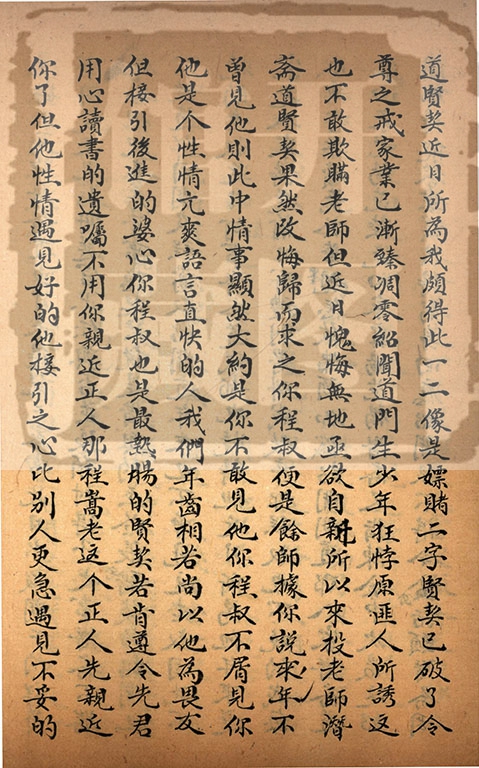 道賢契近日所為我頗得此一二像是嫖賭二字賢契已破了令
尊之戒家業已漸臻凋零紹聞道門生少年狂悖原匪人所誘这
也不敢欺瞞老師但近日愧悔無地亟欲自新所以來投老師潛
斋道賢契果然改悔歸而求之你程叔便是餘師據你説來年不
曾見他則此中情事顯然大約是你不敢見他你程叔不屑見你
他是个性情亢爽語言直快的人我們年齒相若尚以他為畏友
但接引後進的婆心你程叔也是最熱腸的賢契若肯遵令先君
用心讀書的遺囑不用你親近正人那程嵩老这个正人先親近
你了但他性情遇見好的他接引之心比别人更急遇見不妥的